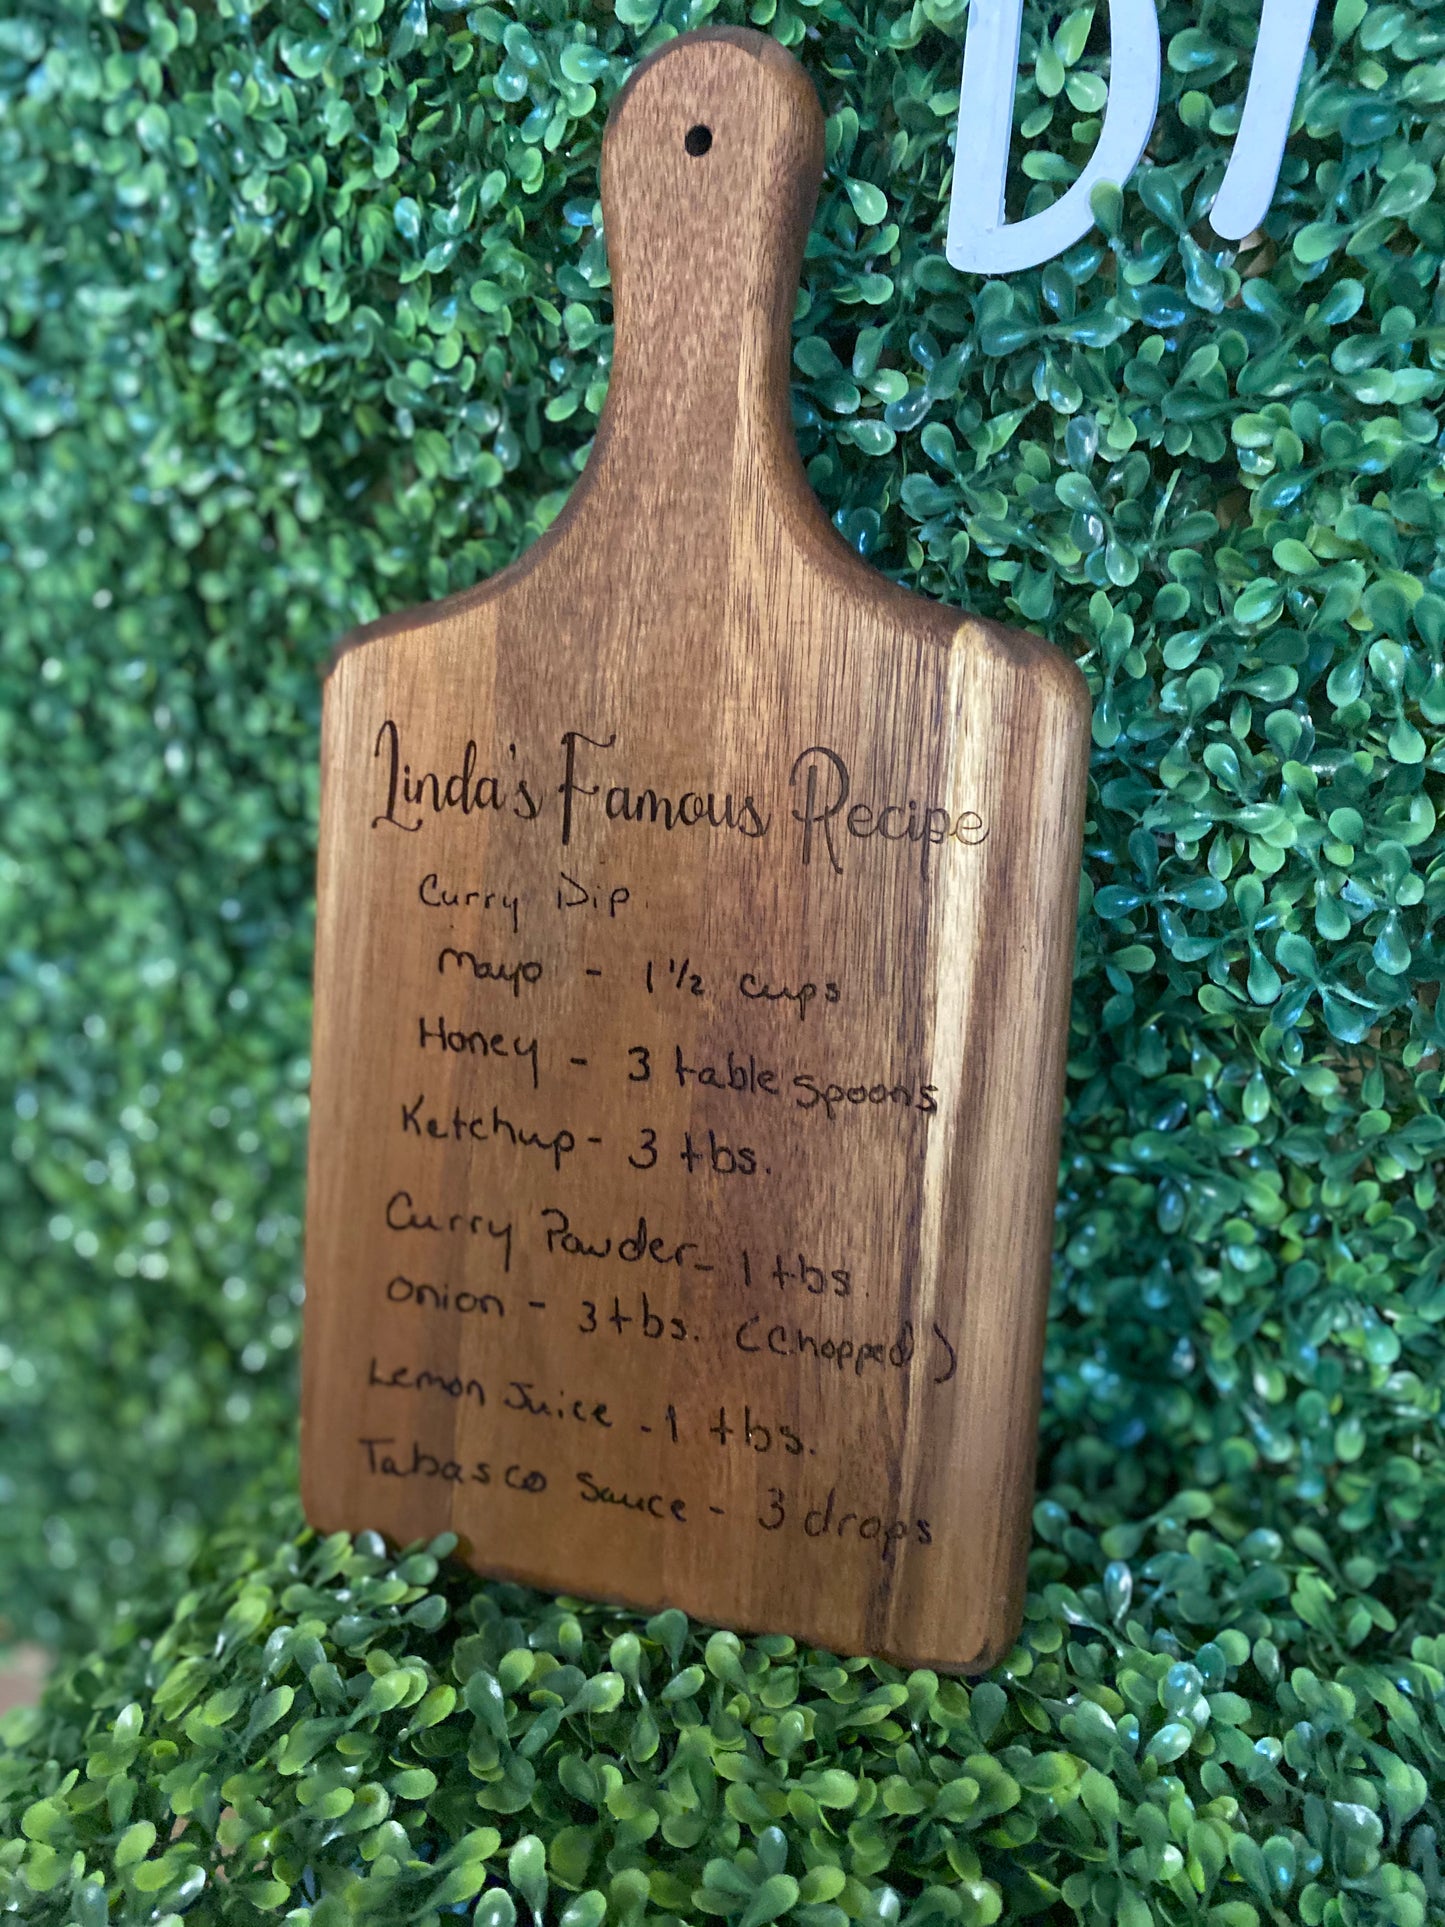 Linda's Famous Recipe
Curry Dip
Mayo - 1 1/2 cups
Honey - 3 table spoons
Ketchup - 3 tbs.
Curry Powder - 1 tbs.
Onion - 3 tbs. (Chopped)
Lemon Juice - 1 tbs.
Tabasco Sauce - 3 drops